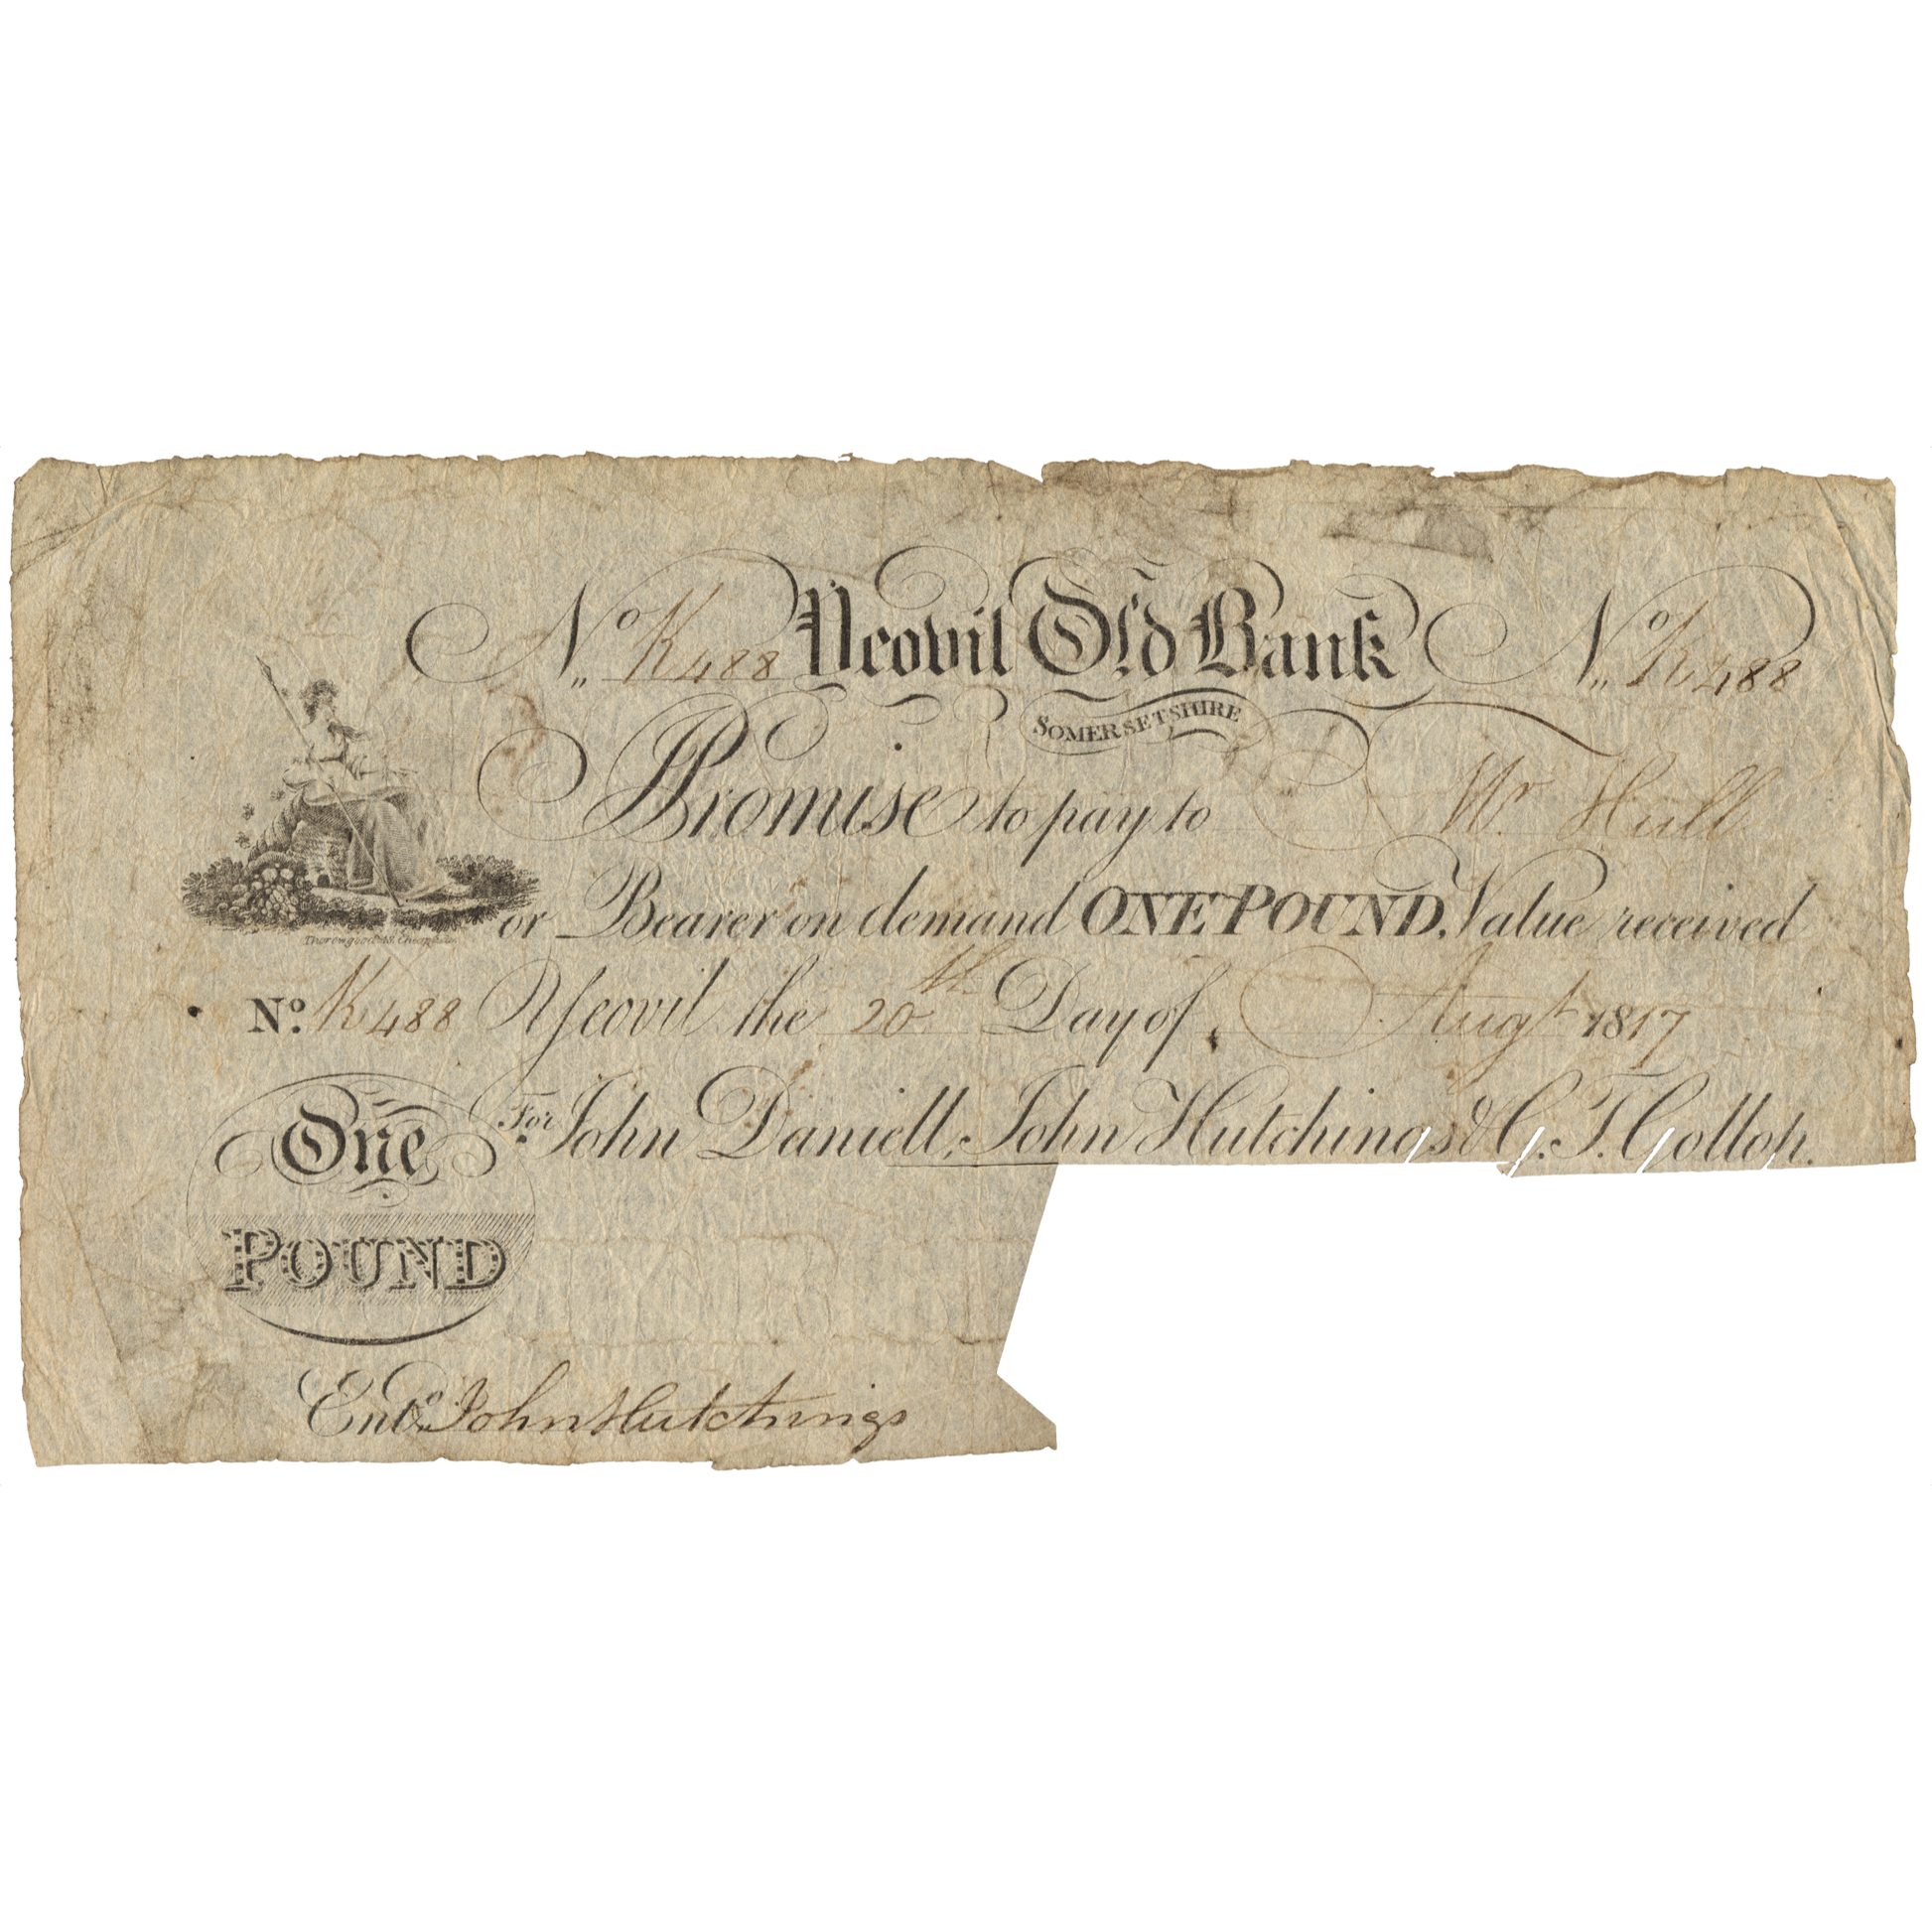 No K488 Yeovil Old Bank No K488
SOMERSETSHIRE
I Promise to pay to Mr Hull
or Bearer on demand ONE POUND, Value received
No. K488 Yeovil the 20th Day of Augt 1817
For John Daniell, John Hutchings & G. T. Gollop.
One
POUND
Entd. John Hutchings